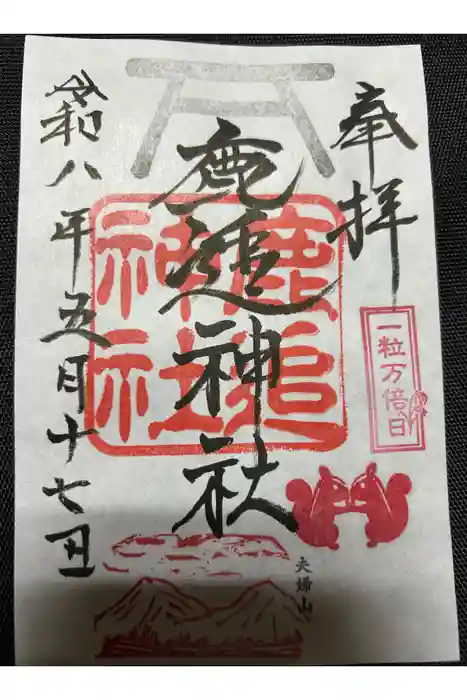 奉拝
一粒万倍日
鹿追神社
鹿追
神社
夫婦山
令和八年五月十七日